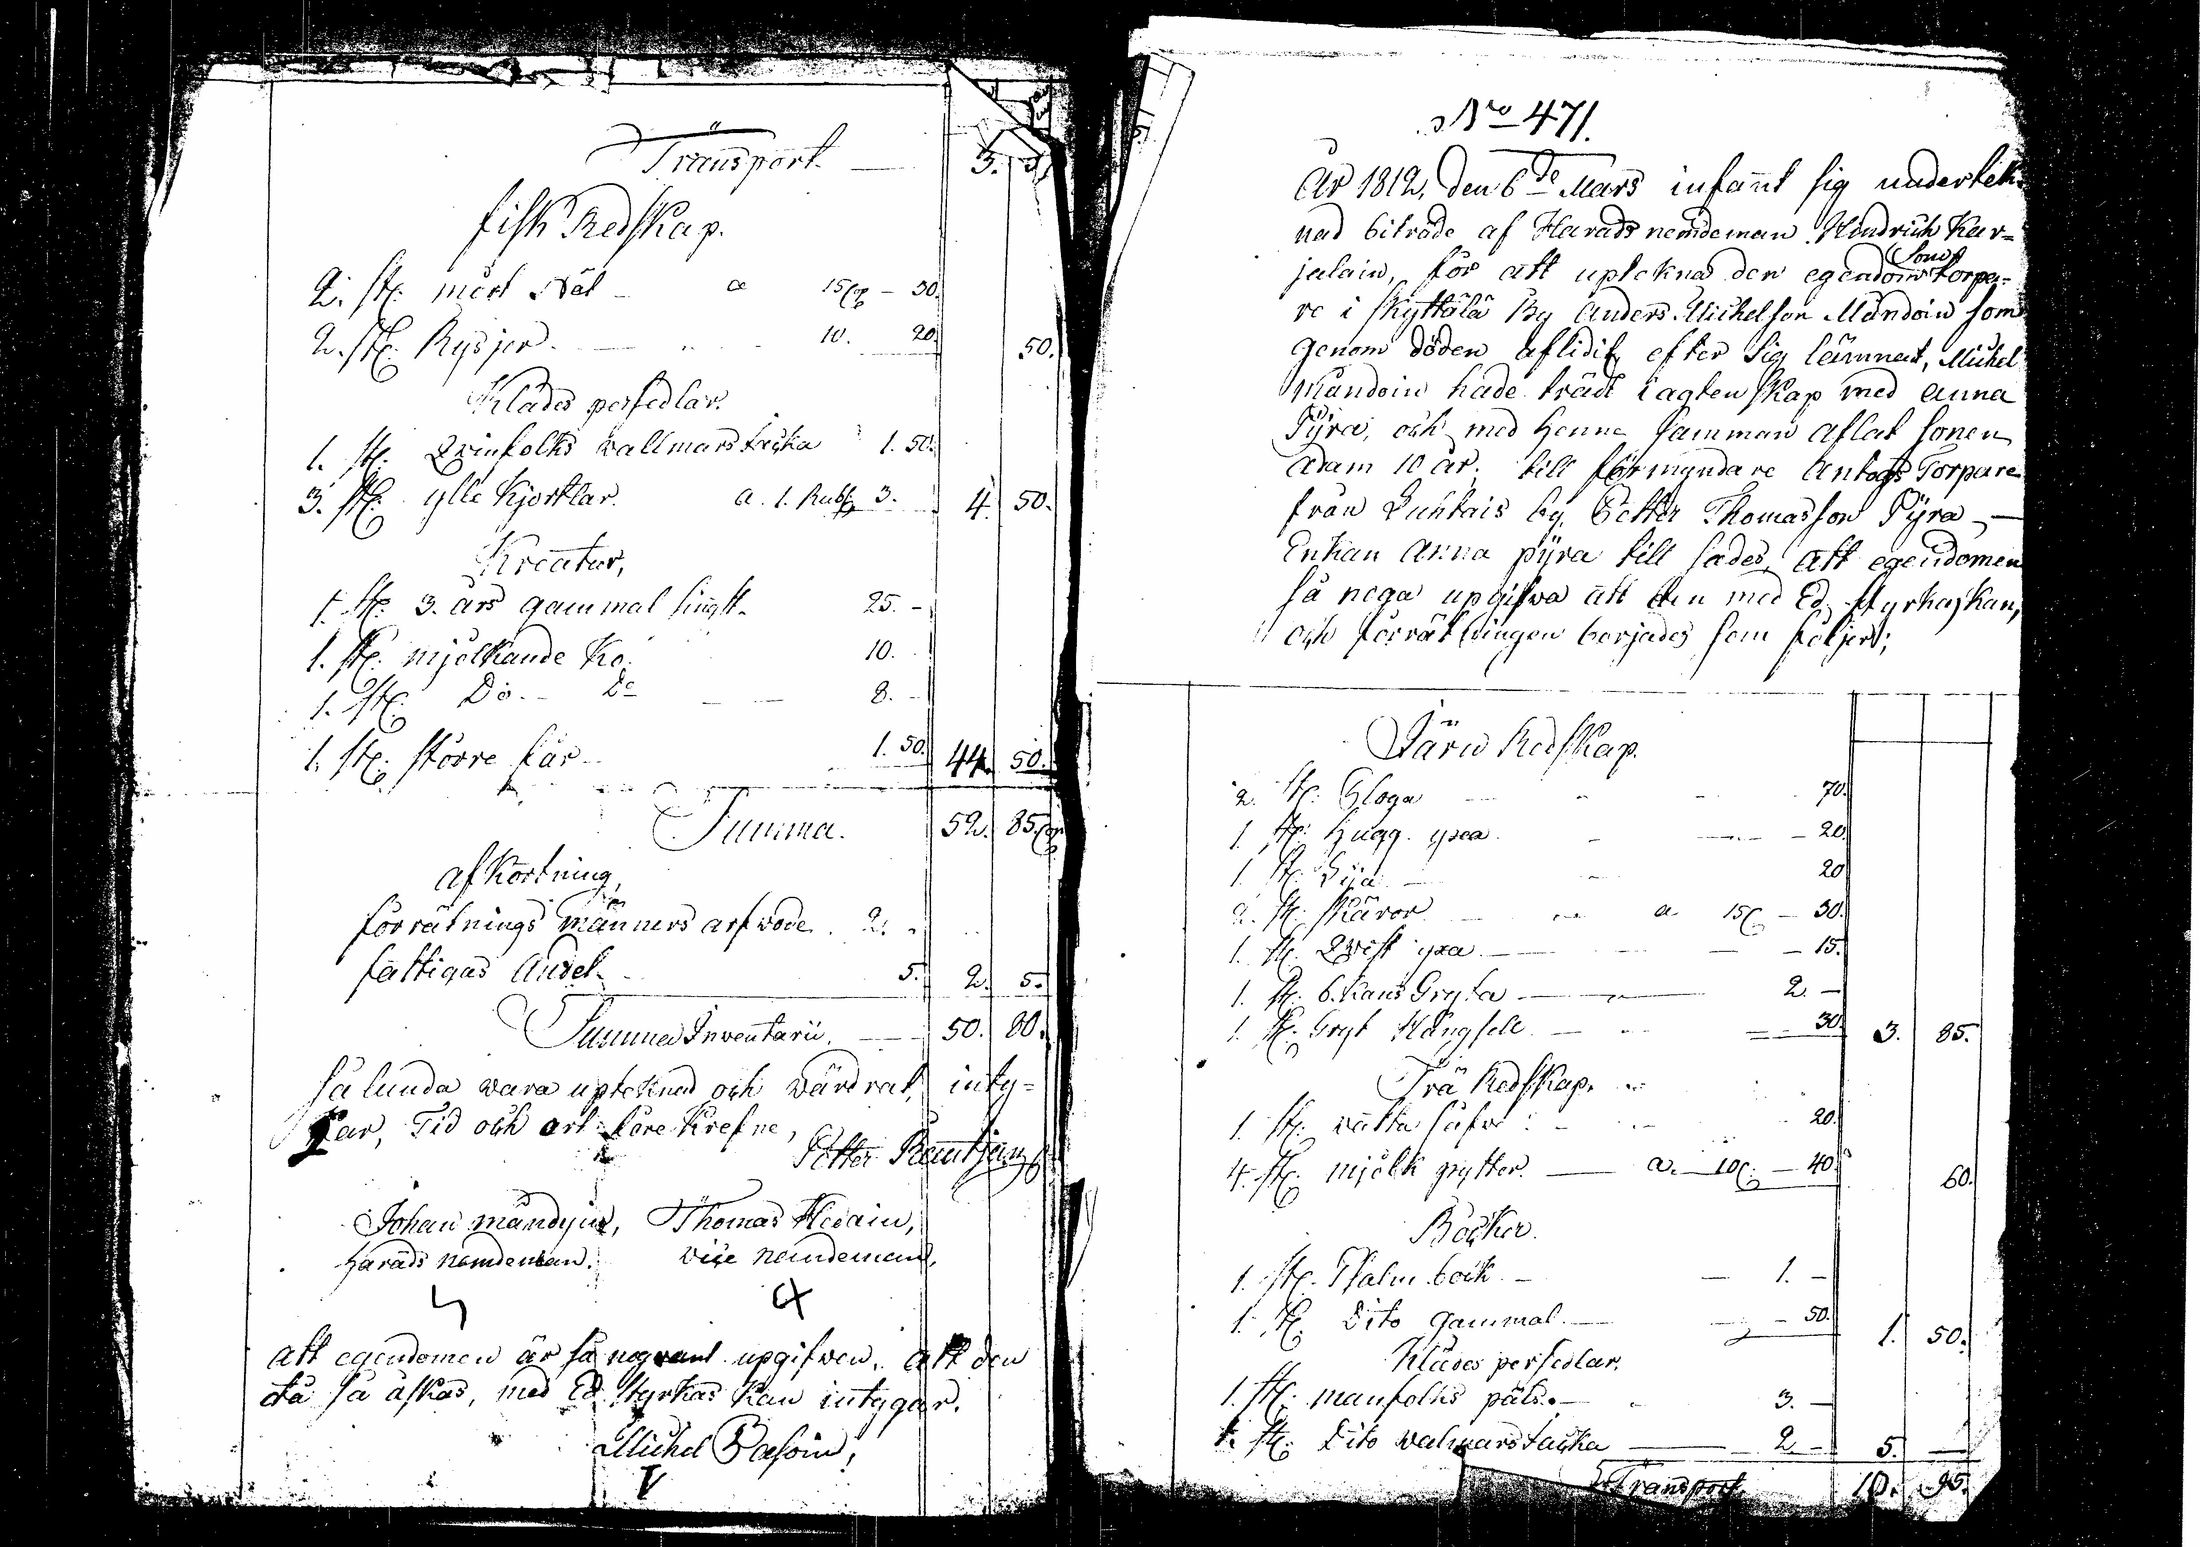 Transport. 3. 3
fisk Redskap.
2. st. mört Nät a 15 Cop - 30.
2. st. Rysjor. 10. 20. 50.
Klädes persedlar.
1. st. Qvinfolks vallmars tacka 1. 50.
3. st. ylle Kjortlar. a. 1. Rubl 3. 4. 50.
Kreatur,
1. st. 3. års gammal hingst. 25. -
1. st. mjölkande Ko. 10.
1. st. Do. Do 8. -
1. st. större får 1. 50. 44. 50.
Summa. 52. 85. Cop
afkortning,
förrätnings männers arfvode. 2.
fattigas Andel. 5. 2. 5.
Summa Inventarii. 50. 80.
så lunda vara uptcknad och värdrat, inty=
gar, Tid och ort före skrefne,
Petter
Johan mändyin, Thomas
härads nämdeman. vice nämdeman.
att egendomen är så nogrant upgifven, att den
då så äskas, med Ed styrkas kan intygar.
Michel
No 471.
År 1812, den 6de Mars infannt sig undertek-
nad biträde af Harads nemdeman Hindrich Kar=
jalain, för att upteknad den egendom Som torpa-
re i Kyttälä By Anders Michelson Mändoin som
genom döden aflidit efter sig lämnat, Michel
Mändoin hade trädt i agtenskap med Anna
Pÿrä, och med henne samman aflat sonen
Adam 10 år. till förmyndare Antogs Torpare
från by, Petter Thomasson Pÿrä —
Enkan Anna pÿrä till sades, att egendomen
så noga upgifva att den med Ed styrkas kan,
och förrätningen borjades som följer;
Järn Redskap.
2. st. Gloga 70.
1. st. hugg. yxa. 20.
1. st. Lija 20
2. st. skäror a 15 C - 30.
1. st. Qvist yxa - 15.
1. st. 6. Kans Gryta 2. -
1. st. Gryt Hängsele 30. 3. 85.
Trä Redskap.
1. st. vatta såfw 20.
4. st. mjölk pytter. a. 10 C. - 40. 60.
Böcker.
1. st. Psalm bock - 1. -
1. st. Dito gammal. 50. 1. 50.
Klädes persedlar.
1. st. manfolks päls. 3. -
1. st. Dito valmars tacka 2. - 5. -
Transport 10. 95.